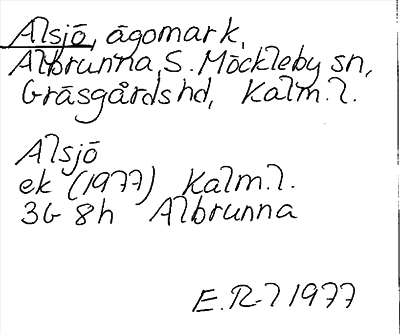 Alsjö, ägomark,
Albrunna, S. Möckleby sn,
Gräsgårds hd, Kalm. l.
Alsjö
ek (1977) Kalm. l.
3G 8h Albrunna
E.R-l 1977